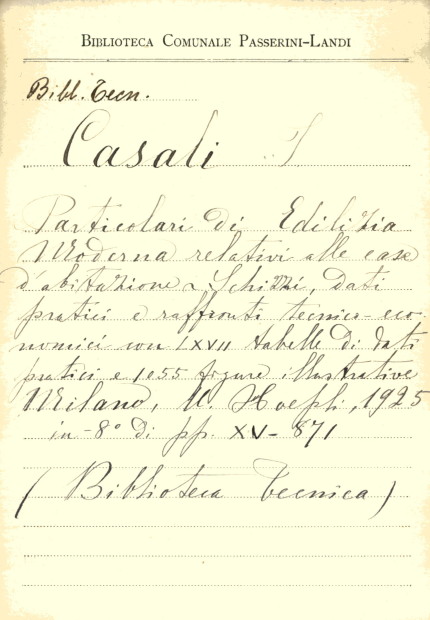 BIBLIOTECA COMUNALE PASSERINI-LANDI
Bibl. Tecn.
Casali I
Particolari di Edilizia
Moderna relativi alle case
d'abitazione - Schizzi, dati
pratici e raffronti tecnico-eco-
nomici con LXVII tabelle di dati
pratici e 1055 figure illustrative
Milano, U. Hoepli, 1925
in-8° di pp. XV-871
(Biblioteca Tecnica)